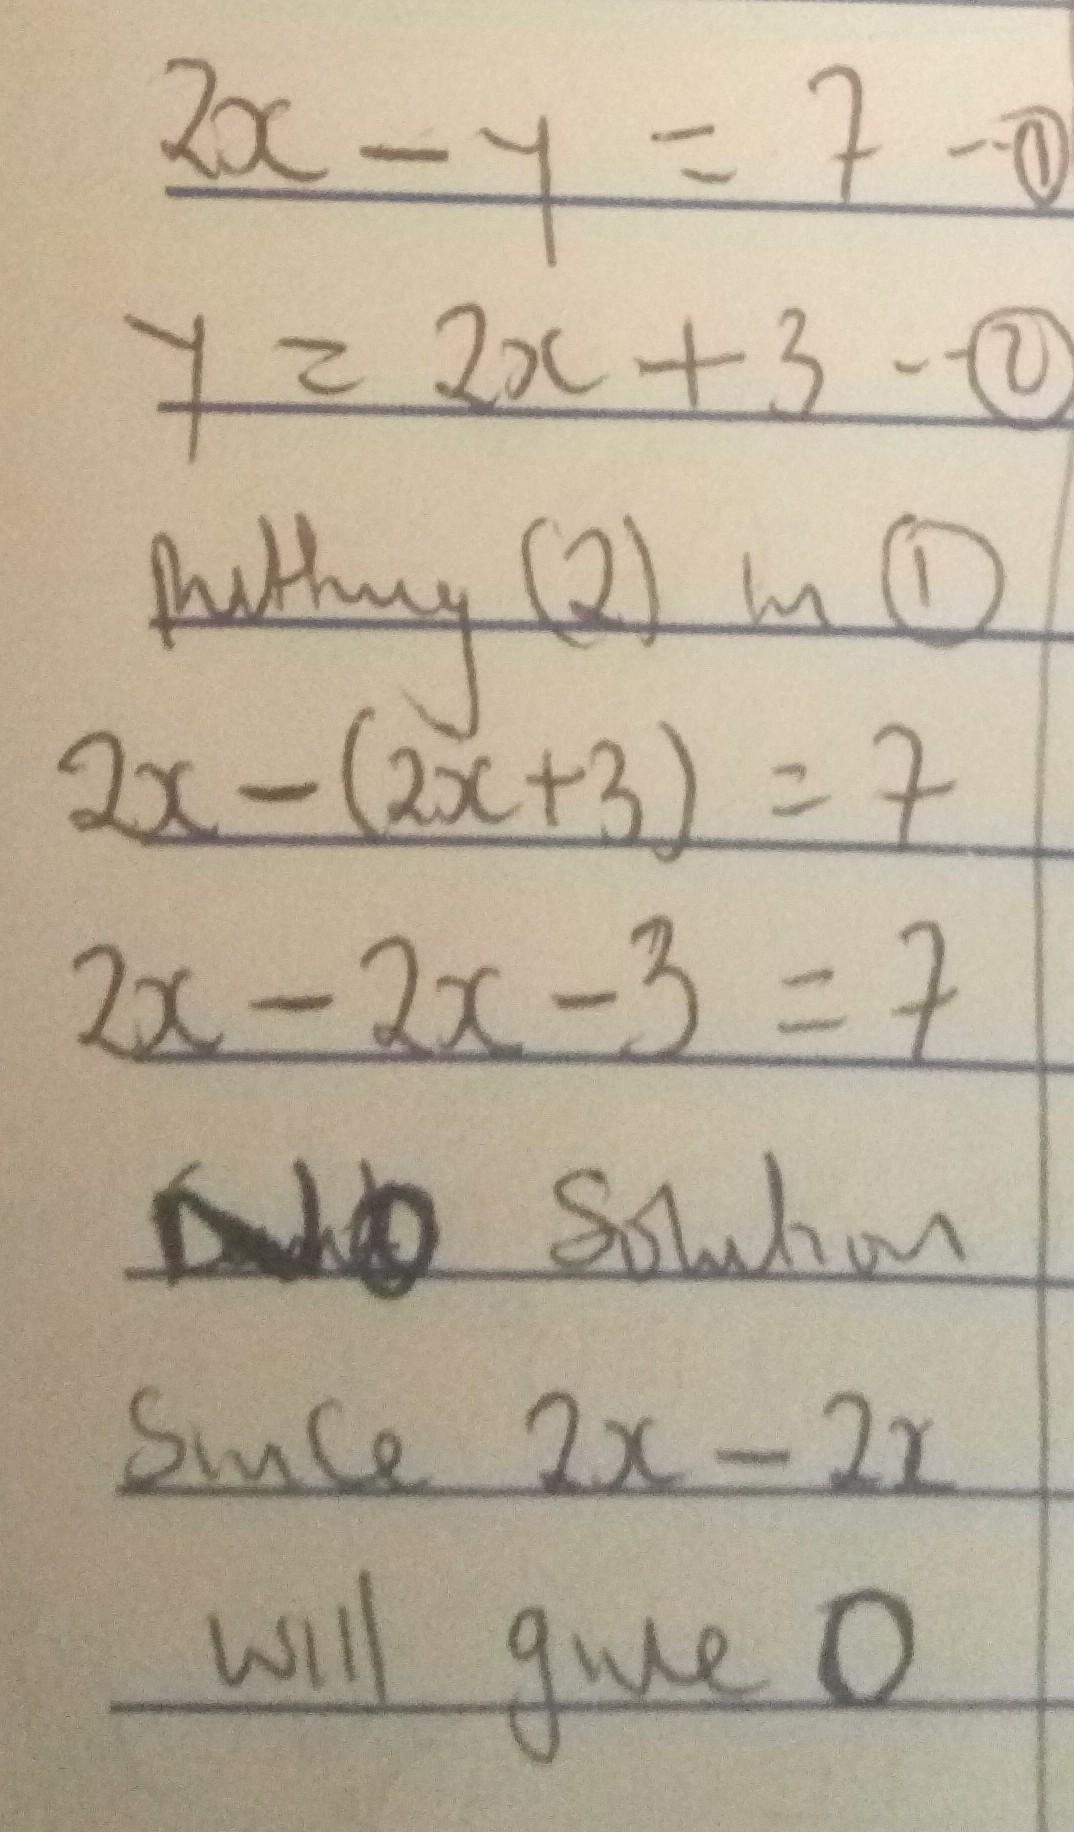 2x - y = 7 --①
y = 2x + 3 --②
putting (2) in ①
2x - (2x+3) = 7
2x - 2x - 3 = 7
No Solution
Since 2x - 2x
will give 0